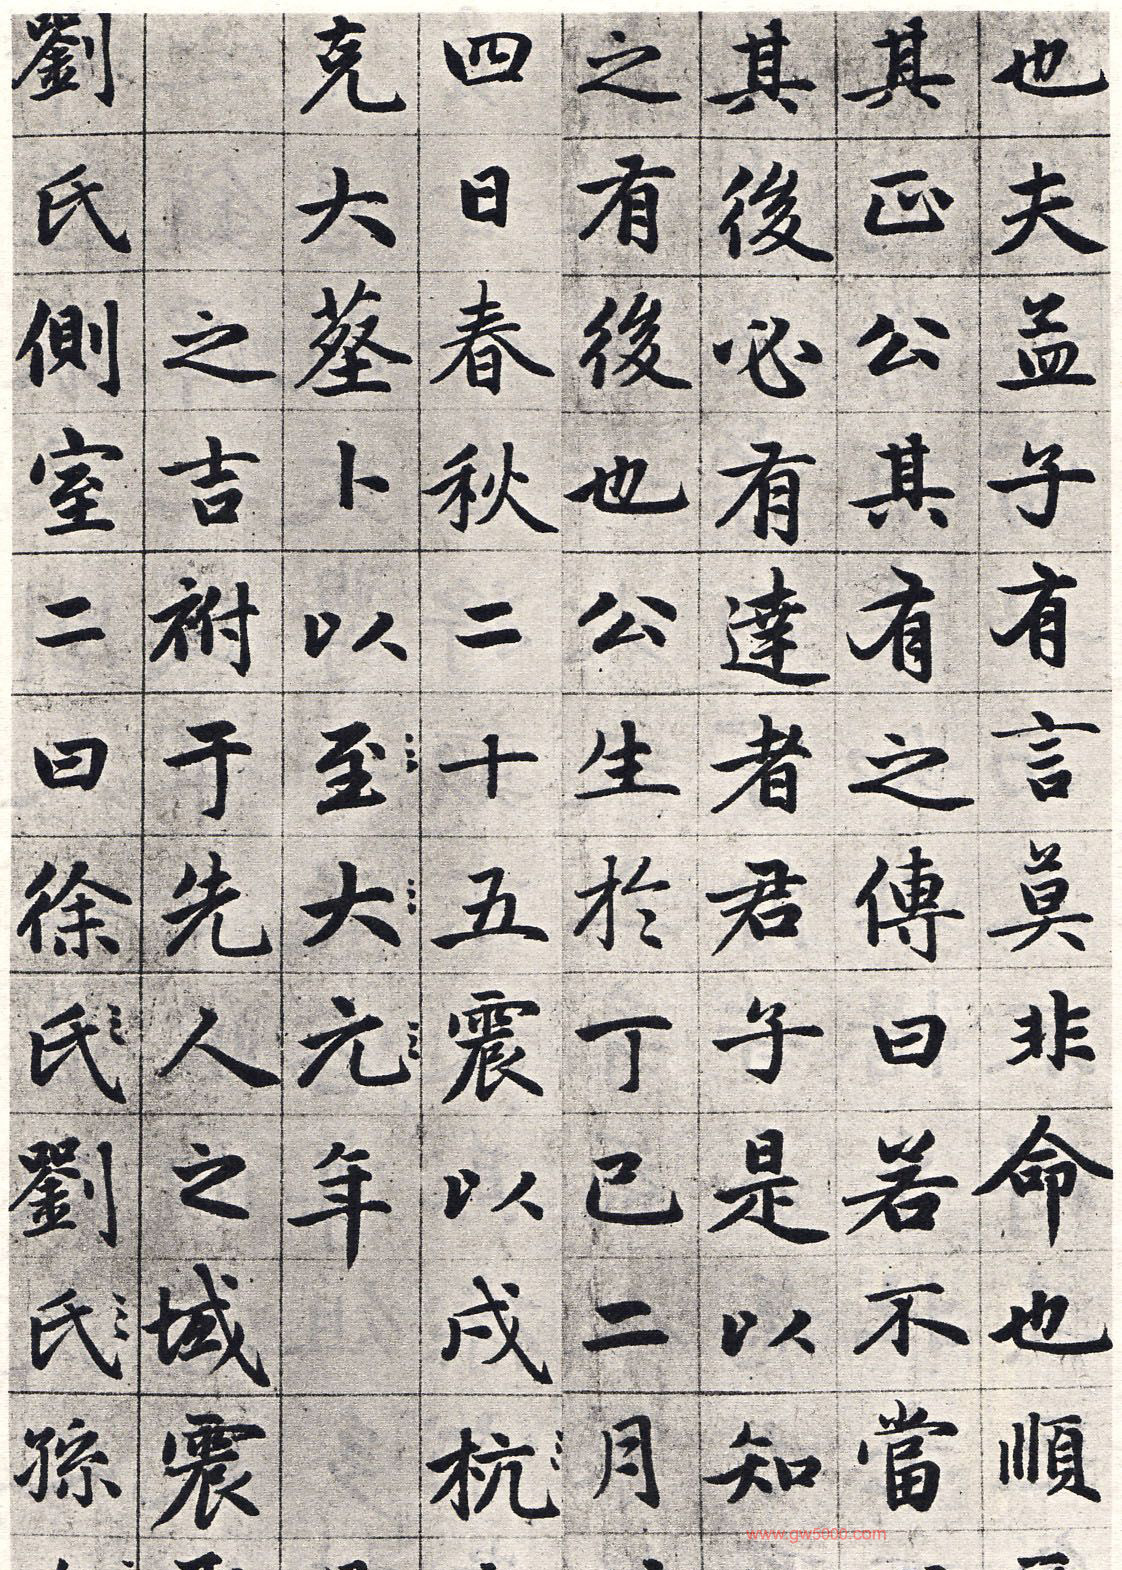 也夫孟子有言莫非命也順
其正公其有之傳曰若不當
其後必有達者君子是以知
之有後也公生於丁巳二月
四日春秋二十五震以戌杭
克大葬卜以至大元年
之吉祔于先人之域震
劉氏側室二曰徐氏劉氏孫
www.gw5000.com